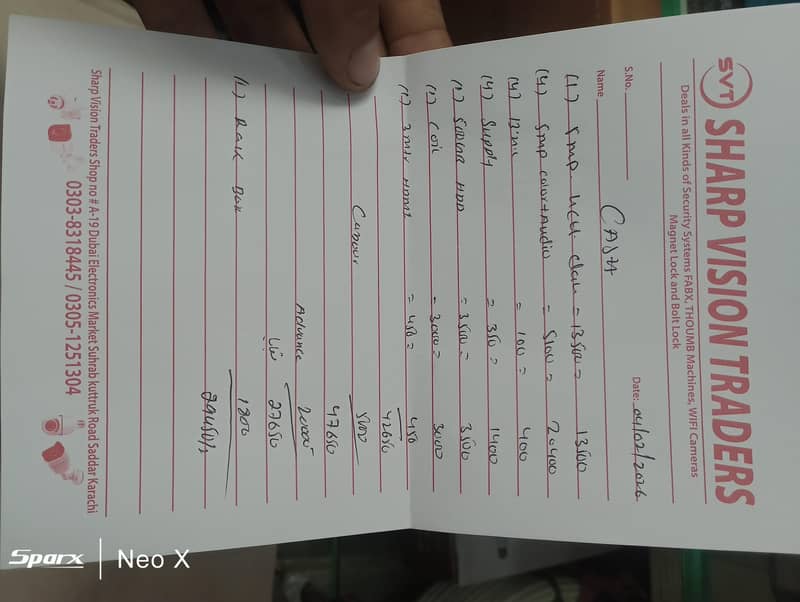 SVT SHARP VISION TRADERS
Deals in all Kinds of Security Systems FABX, THOUMB Machines, WIFI Cameras
Magnet Lock and Bolt Lock
S.No. Date: 04/02/2026
Name CASH
(1) 5mp 4CH = 13500 = 13500
(4) 5mp color+Audio = 5100 = 20400
(4) = 100 = 400
(4) Supply = 350 = 1400
(1) 500GB HDD = 3500 = 3500
(1) Coil = 3000 = 3000
(1) HDMI = 450 = 450
42650
5000
47650
Advance 20000
27650
(1) Rak Box 1800
29450/-
Sharp Vision Traders Shop no # A-19 Dubai Electronics Market Suhrab kuttruk Road Saddar Karachi
0303-8318445 / 0305-1251304
Sparx | Neo X